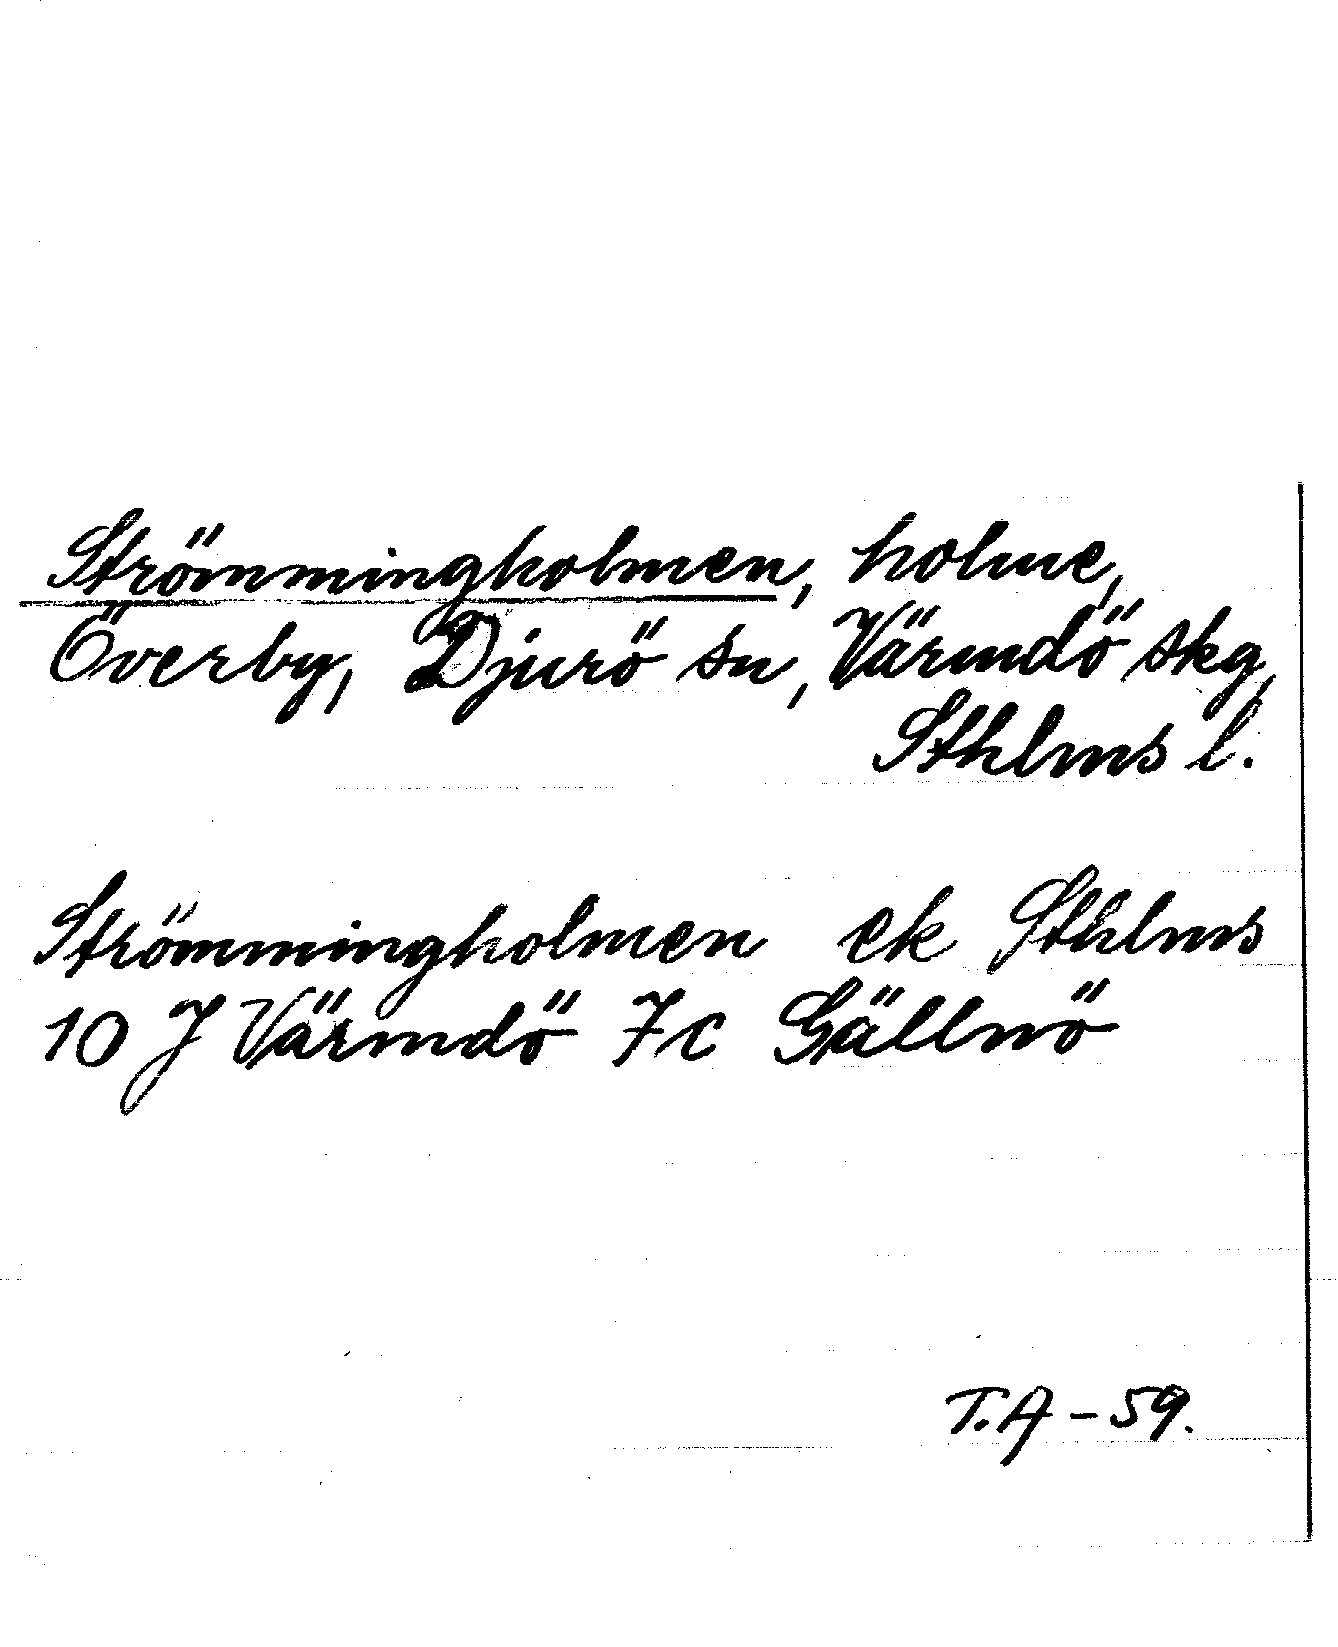 Strömmingholmen, holme,
Överby, Djurö sn, Värmdö skg,
Sthlms l.
Strömmingholmen ek Sthlms
10 J Värmdö 7c Gällnö
T.A - 59.